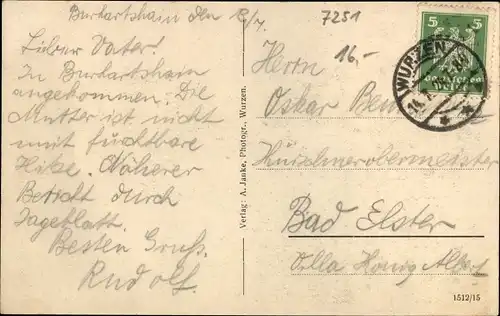 Burkartshain den 12/7.
Lieber Vater!
In Burkartshain
angekommen. Die
Mutter ist nicht
mit furchtbare
Hike. Näherer
Bericht durch
Tageblatt.
Besten Gruß.
Rudolf.
Verlag: A. Janke, Photogr., Wurzen.
7251
16,-
5 5
Deutsches
Reich
WURZEN
Herrn
Oskar
Kürschnerobermeister
Bad Elster
Villa König Albert
1512/15